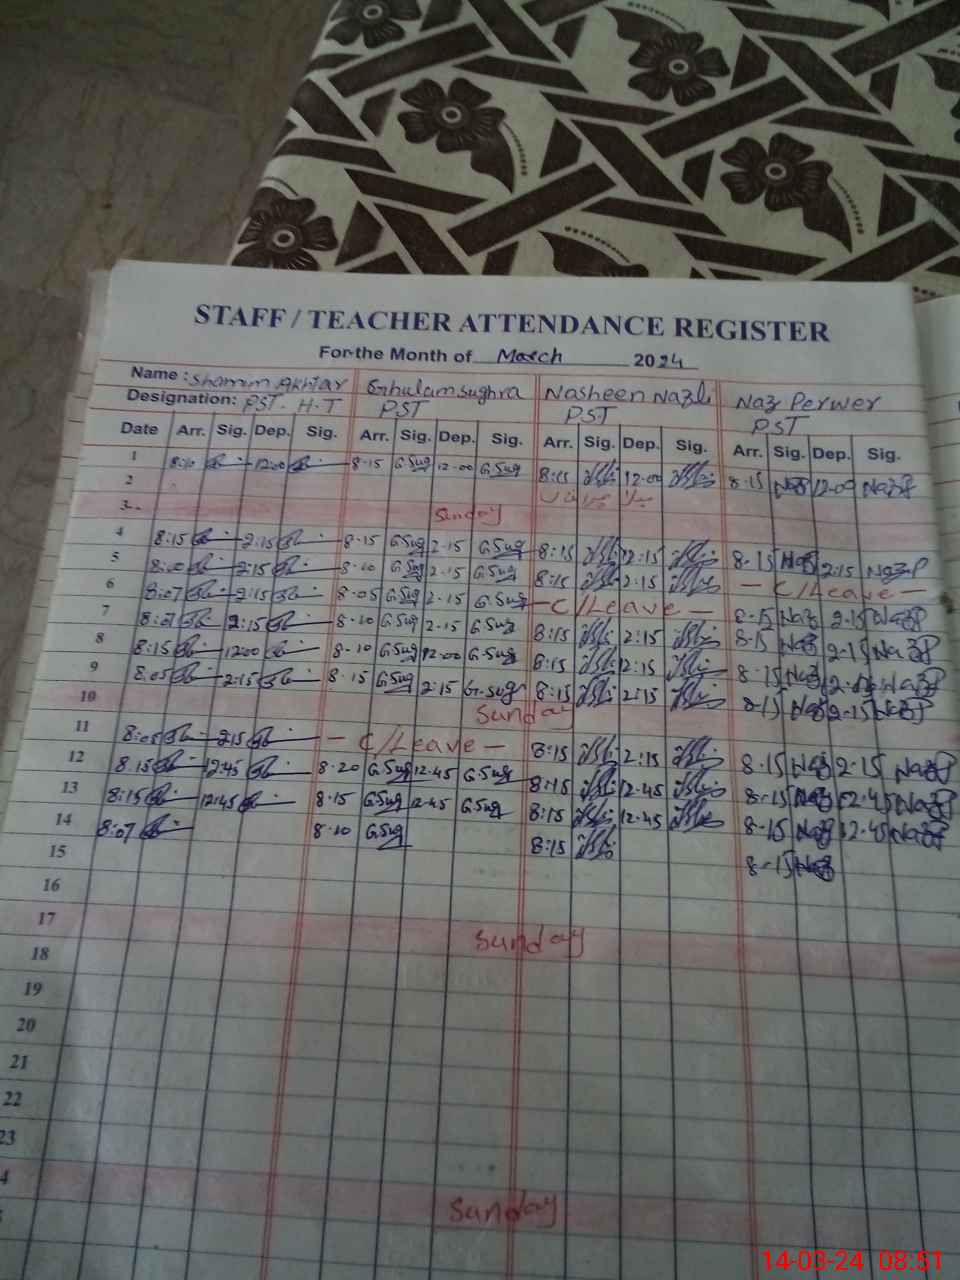 STAFF / TEACHER ATTENDANCE REGISTER
For the Month of March 2024
Name: Shamim Akhtar Ghulam Sughra Nasheen Nazli Naz Perwer
Designation: PST. H.T PST PST PST
Date Arr. Sig. Dep. Sig. Arr. Sig. Dep. Sig. Arr. Sig. Dep. Sig. Arr. Sig. Dep. Sig.
1 8:10 12:00 8-15 G.Sug 12-00 G.Sug 8:15 12-00 8-15 Naz 12-00 NazP
2
3 Sunday
4 8:15 2:15 8-15 G.Sug 2-15 G.Sug 8:15 2:15 8-15 Naz 2:15 NazP
5 8:10 2:15 8-10 G.Sug 2-15 G.Sug 8:15 2-15 - C/Leave -
6 8:07 2:15 8-05 G.Sug 2-15 G.Sug - C/Leave - 8-15 Naz 2-15 NazP
7 8:07 2:15 8-10 G.Sug 2-15 G.Sug 8:15 2:15 8-15 Naz 2-15 NazP
8 8:15 12:00 8-10 G.Sug 12-00 G.Sug 8:15 12:15 8-15 Naz NazP
9 8:05 2:15 8-15 G.Sug 2:15 G.Sug 8:15 2:15 8-15 Naz 2-15 NazP
10 Sunday
11 8:05 2:15 - C/Leave - 8:15 2:15 8-15 Naz 2-15 NazP
12 8:15 12:45 8-20 G.Sug 12.45 G.Sug 8:15 12.45 8-15 Naz 12.45 NazP
13 8:15 12:45 8-15 G.Sug 12-45 G.Sug 8:15 12.45 8-15 Naz 12.45 NazP
14 8:07 8-10 G.Sug 8:15 8-15 Naz
15
16
17 Sunday
18
19
20
21
22
23
4 Sunday
14-03-24 08:51